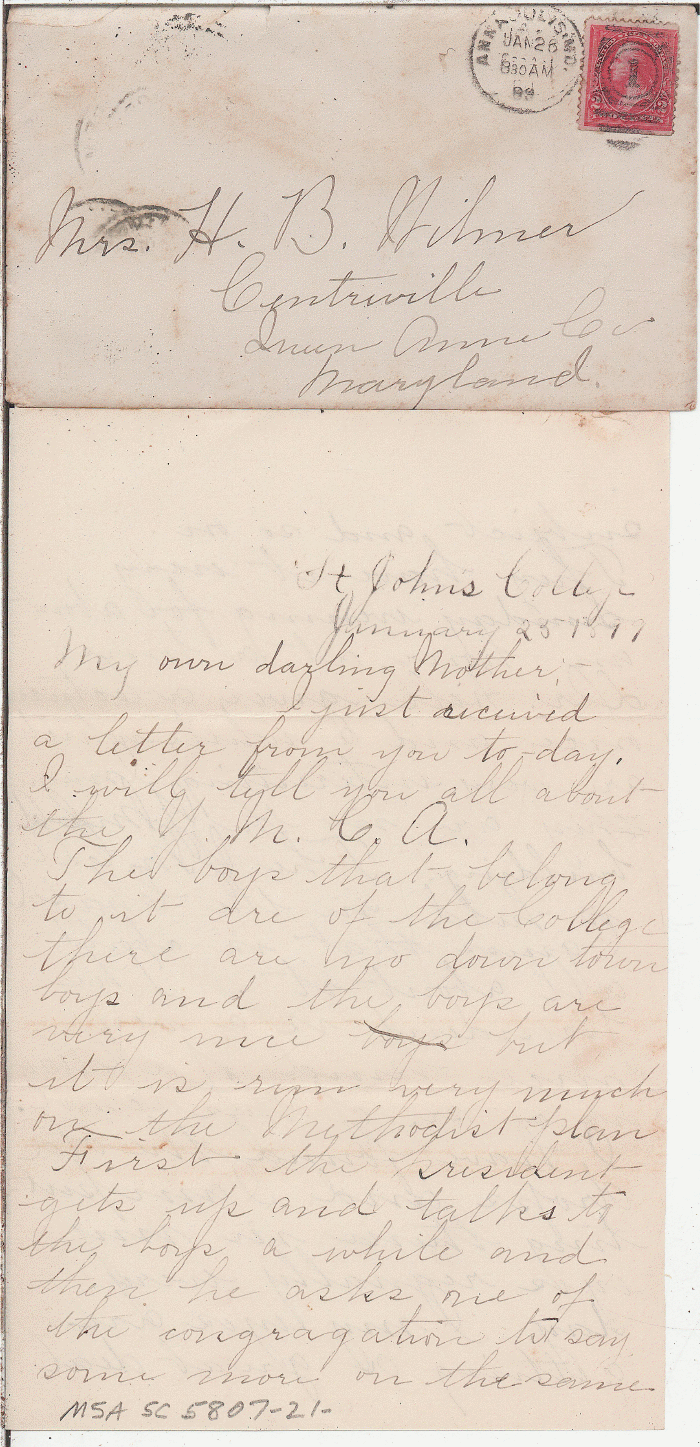 ANNAPOLIS, MD.
JAN 26
830AM
Mrs. H. B. Wilmer
Centreville
Queen Anne Co
Maryland.
St Johns College
January 25
My own darling Mother,
I just received
a letter from you to-day.
I will tell you all about
the Y. M. C. A.
The boys that belong
to it are of the College
there are no down town
boys and the boys are
very nice boys but
it is run very much
on the Methodist plan
First the president
gets up and talks to
the boys a while and
then he asks one of
the congragation to say
some more on the same
MSA SC 5807-21-